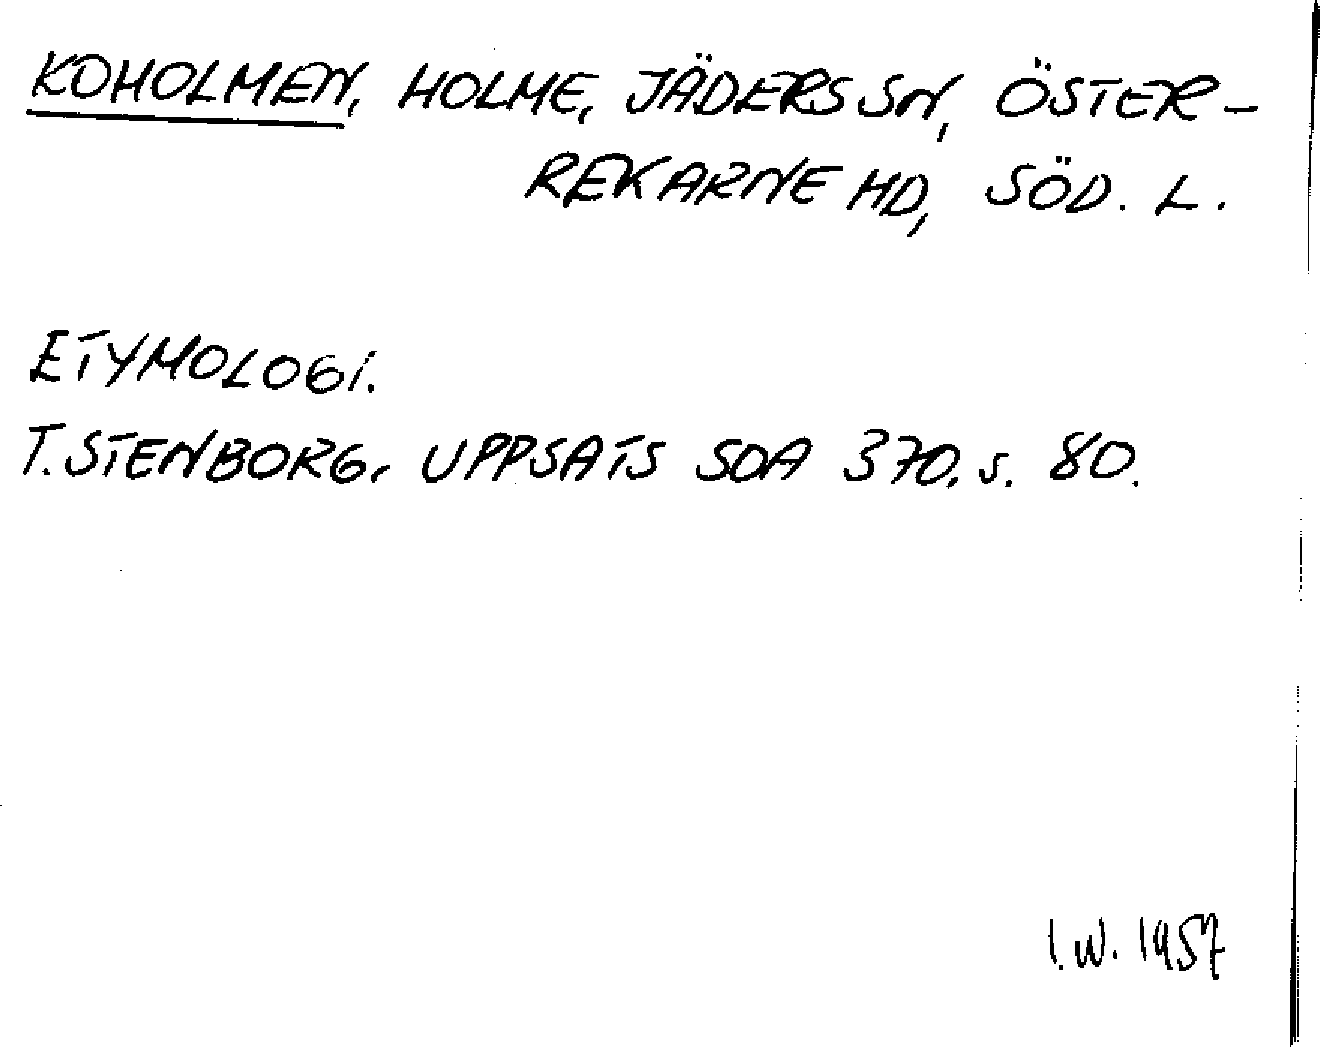 KOHOLMEN, HOLME, JÄDERS SN, ÖSTER-
REKARNE HD, SÖD. L.
ETYMOLOGI.
T. STENBORG, UPPSATS SOA 370, s. 80.
I.W. 1957